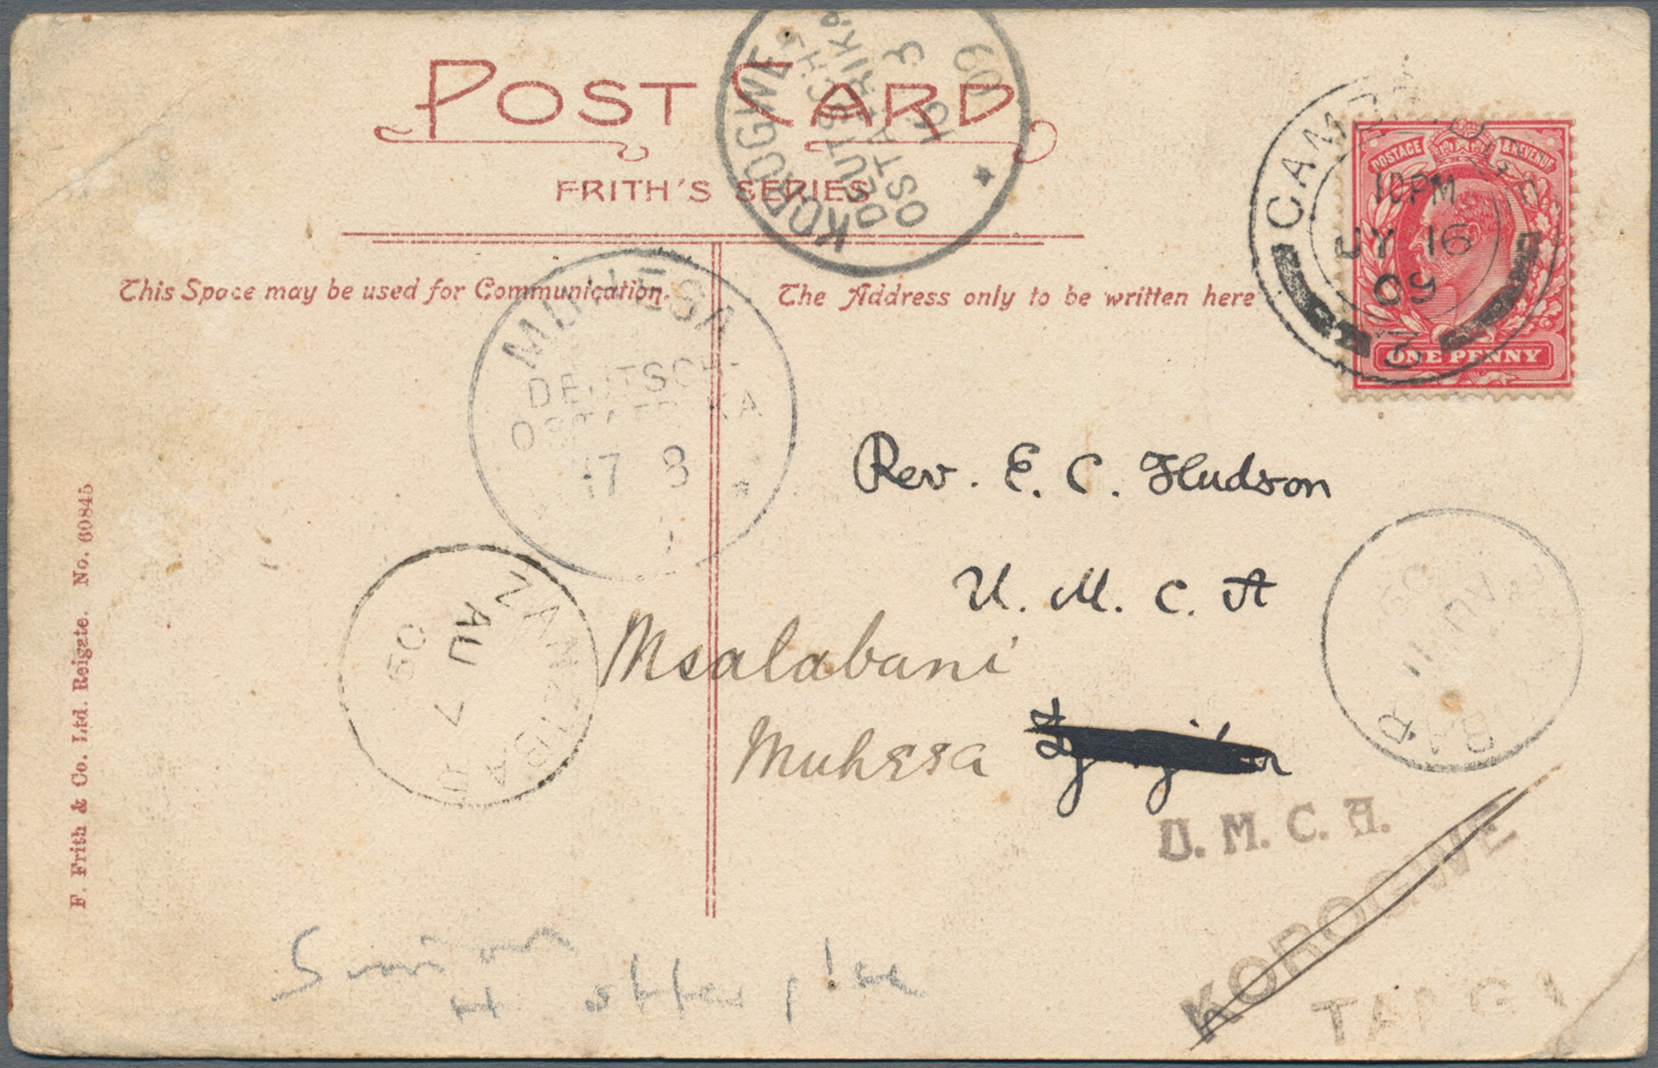 POST CARD
FRITH'S SERIES
This Space may be used for Communication.
The Address only to be written here
KOROGWE
DEUTSCH-
OSTAFRIKA
15 8 09
CAMBRIDGE
10 PM
JY 16
09
2
POSTAGE & REVENUE
ONE PENNY
MUHESA
DEUTSCH-
OSTAFRIKA
17 8
Rev. E. C. Hudson
U. M. C. A
Msalabani
Muhesa
ZANZIBAR
AU 7
09
ZANZIBAR
AU 11
09
U. M. C. A.
KOROGWE
TANGA
F. Frith & Co. Ltd. Reigate. No. 60845